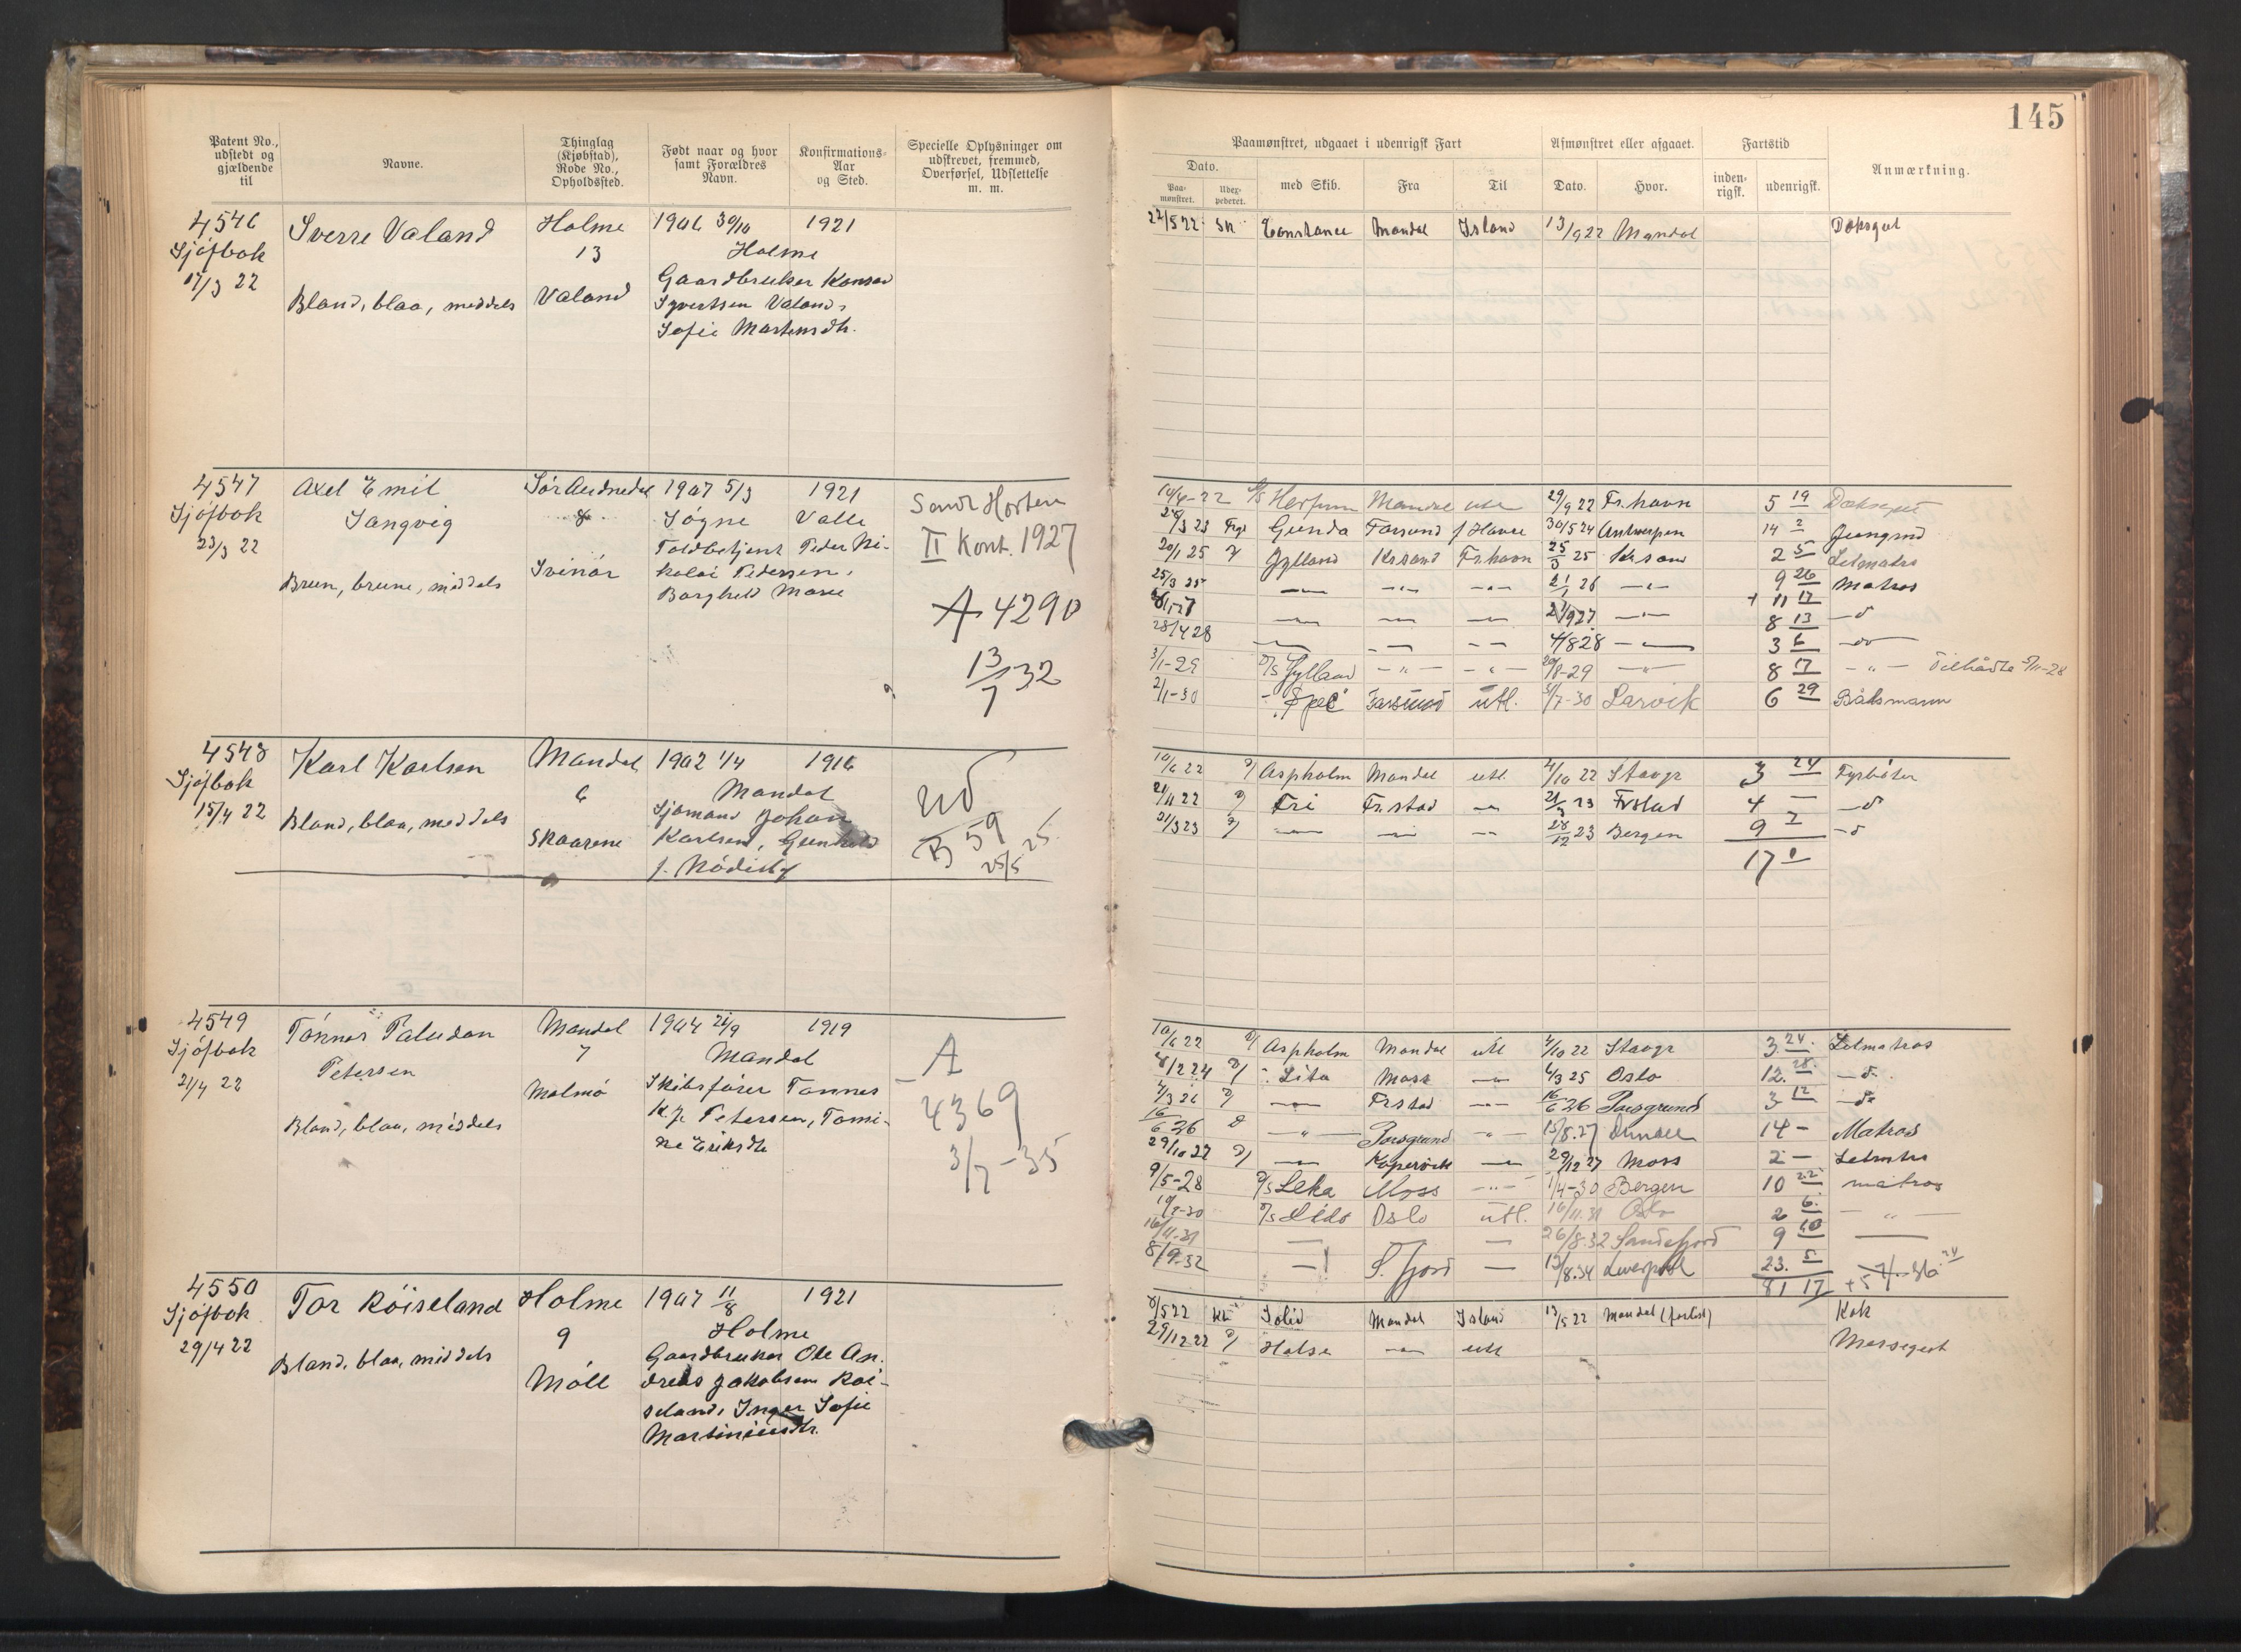 145
Patent No., udstedt og gjældende til
Navne.
Thinglag (Kjøbstad), Rode No., Opholdssted.
Født naar og hvor samt Forældres Navn.
Konfirmations-Aar og Sted.
Specielle Oplysninger om udskrevet, fremmed, Overførsel, Udslettelse m. m.
Paamønstret, udgaaet i udenrigsk Fart
Afmønstret eller afgaaet.
Fartstid
Anmærkning.
Dato.
Paa-mønstret.
Udex-pederet.
med Skib.
Fra
Til
Dato.
Hvor.
inden-rigsk.
udenrigsk.
4546 Sverre Valand Holme 1906 30/10 1921
Sjöfbok 13 Holme
17/3 22 Gaardbruker Konrad
Blond, blaa, middels Valand Syvertsen Valand,
Sofie Martensdtr.
22/5 22 Sk Constance Mandal Island 13/9 22 Mandal Dæksgut
4547 Axel Emil Sör Audnedal 1907 5/3 1921
Sjöfbok Tangvig 8 Søgne Valle
23/3 22 Toldbetjent Peder Ni-
Svinör kolai Pedersen,
Brun, brune, middels Borghild Marie
Sendt Horten
II Kont. 1927
A 4290
13/7 32
Mandal utl 29/9 22 Fr.havn 5 19 Dæksgut
Gunda Farsund f Havre 30/5 24 Antwerpen 14 2 Jungmd
20/1 25 Jylland Krsand Fr.havn 25/3 25 Krsand 2 5 Letmatros
25/3 25 2/1 26 9 26 Matros
+ 11 17
8 13 - d
28/4 28 4/8 28 3 6 - do -
3/1-29 D/S Jylland 20/8-29 8 17 - " -
2/1-30 Farsund utl. 7-30 Larvik 6 29 Båtsmann
4548 Karl Karlsen Mandal 1902 1/4 1916
Sjöfbok 6 Mandal
15/4 22 Sjömand Johan
Blond, blaa, middels Skaarene Karlsen, Gunhild
f. Nödisg
ud
B 59
25/5 25
10/6 22 Aspholm Mandal utl 4/10 22 Stavgr 3 24 Fyrböter
21/11 22 Fri Fr.stad 21/3 23 Frstad 4 - - d
21/3 23 28/12 23 Bergen 9 7 - d
17 1
4549 Tönnes Paludan Mandal 1904 21/9 1919
Sjöfbok Petersen 7 Mandal
21/4 22 Malmö Skibsförer Tönnes
Blond, blaa, middels K.f. Petersen, Tomi-
ne Eriksdtr
A
4369
3/7-35
10/6 22 Aspholm Mandal utl 4/10 22 Stavgr 3 24 Letmatros
Lita Moss 6/3 25 Oslo 12 28 - d
Frstad 16/6 26 Porsgrund 3 12 - d
16/6 26 Porsgrund 15/8.27 Dundee 14 - Matros
29/10 27 Kopervik 29/12 27 Moss 2 - Letmatros
9/5-28 D/S Leka Moss 1/4-30 Bergen 10 22 matros
Oslo utl. 16/11.31 Oslo 2 6
16/11.31 26/8.32 Sandefjord 9 10
8/9.32 S. fjord 13/8.34 Liverpool 23. 5
81 17
4550 Tor Röiseland Holme 1907 11/8 1921
Sjöfbok 9 Holme
29/4 22 Gaardbruker Ole An-
Blond, blaa, middels Möll dreas Jakobsen Röi-
seland, Inger Sofie
Martiniusdtr.
8/5 22 Solid Mandal Island 13/5 22 Mandal (forlist) Kok
29/12 22 Halse utl Messegut